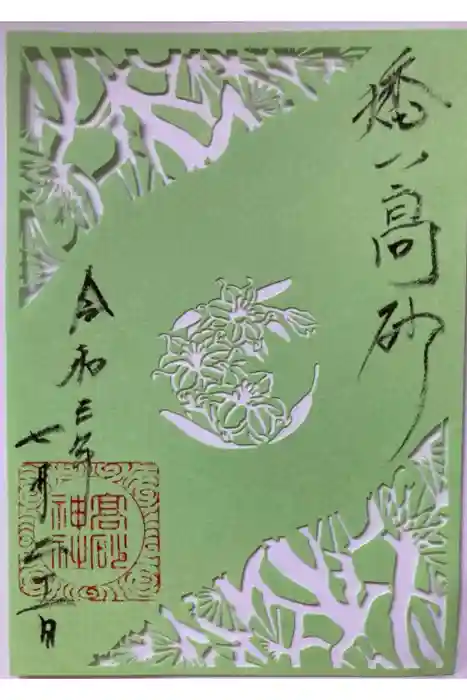 播州高砂
令和三年
七月二十一日
高砂
神社